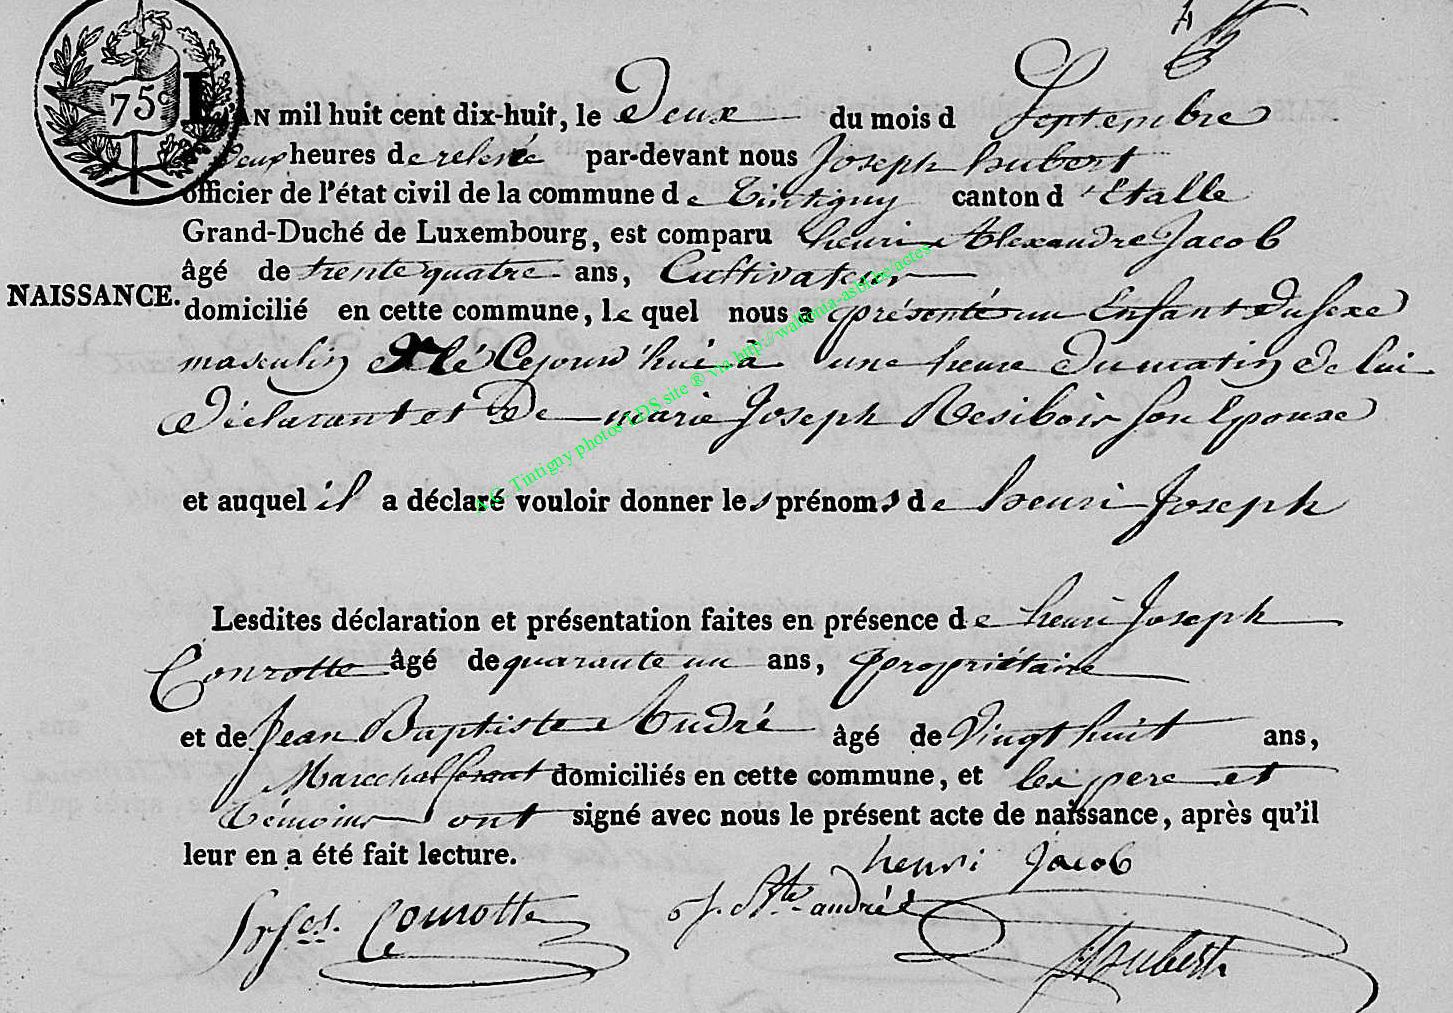 75c
L'AN mil huit cent dix-huit, le Deux du mois d Septembre
deux heures de relevé par-devant nous Joseph hubert
officier de l'état civil de la commune de Tintigny canton d'Etalle
Grand-Duché de Luxembourg, est comparu henri Alexandre Jacob
âgé de trente quatre ans, Cultivateur
NAISSANCE. domicilié en cette commune, le quel nous a présenté un Enfant du sexe
masculin né Cejourd'hui à une heure du matin de lui
Déclarant et De marie Joseph Resibois son Epouse
et auquel il a déclaré vouloir donner les prénoms de henri Joseph
Lesdites déclaration et présentation faites en présence de henri Joseph
Conrotte âgé de quarante un ans, propriétaire
et de Jean Baptiste André âgé de Vingt huit ans,
Marechal ferant domiciliés en cette commune, et les pere et
témoins ont signé avec nous le présent acte de naissance, après qu'il
leur en a été fait lecture.
henri Jacob
Conrotte J. Bte andré
Hubert
A.C. Tintigny photos LDS site ® via http://wallonia-asbl.be/actes